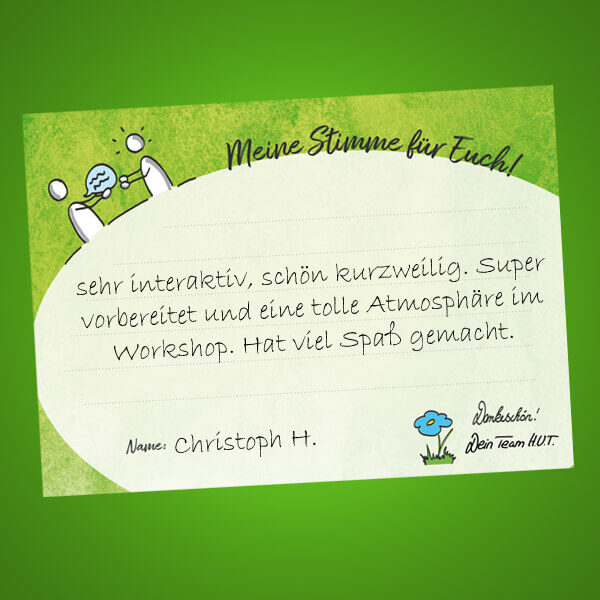 Meine Stimme für Euch!
sehr interaktiv, schön kurzweilig. Super
vorbereitet und eine tolle Atmosphäre im
Workshop. Hat viel Spaß gemacht.
Name: Christoph H.
Dankeschön!
Dein Team HUT.